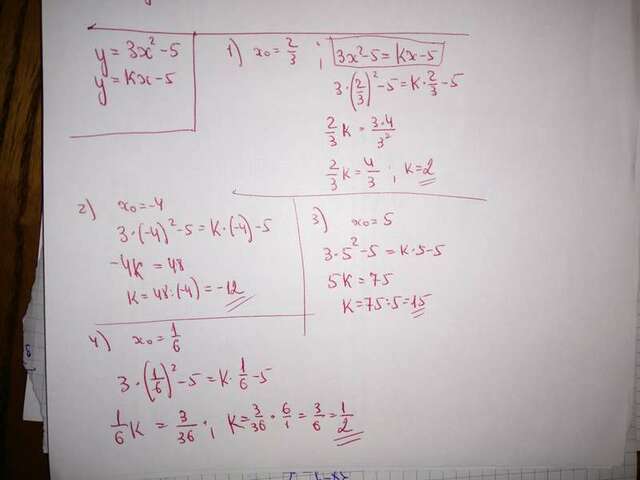 y = 3x² - 5
y = kx - 5
1) x₀ = 2/3 ;
3x² - 5 = kx - 5
3·(2/3)² - 5 = k·2/3 - 5
2/3 k = 3·4/3²
2/3 k = 4/3 ; k = 2
2) x₀ = -4
3·(-4)² - 5 = k·(-4) - 5
-4k = 48
k = 48:(-4) = -12
3) x₀ = 5
3·5² - 5 = k·5 - 5
5k = 75
k = 75:5 = 15
4) x₀ = 1/6
3·(1/6)² - 5 = k 1/6 - 5
1/6 k = 3/36 ; k = 3/36 · 6/1 = 3/6 = 1/2